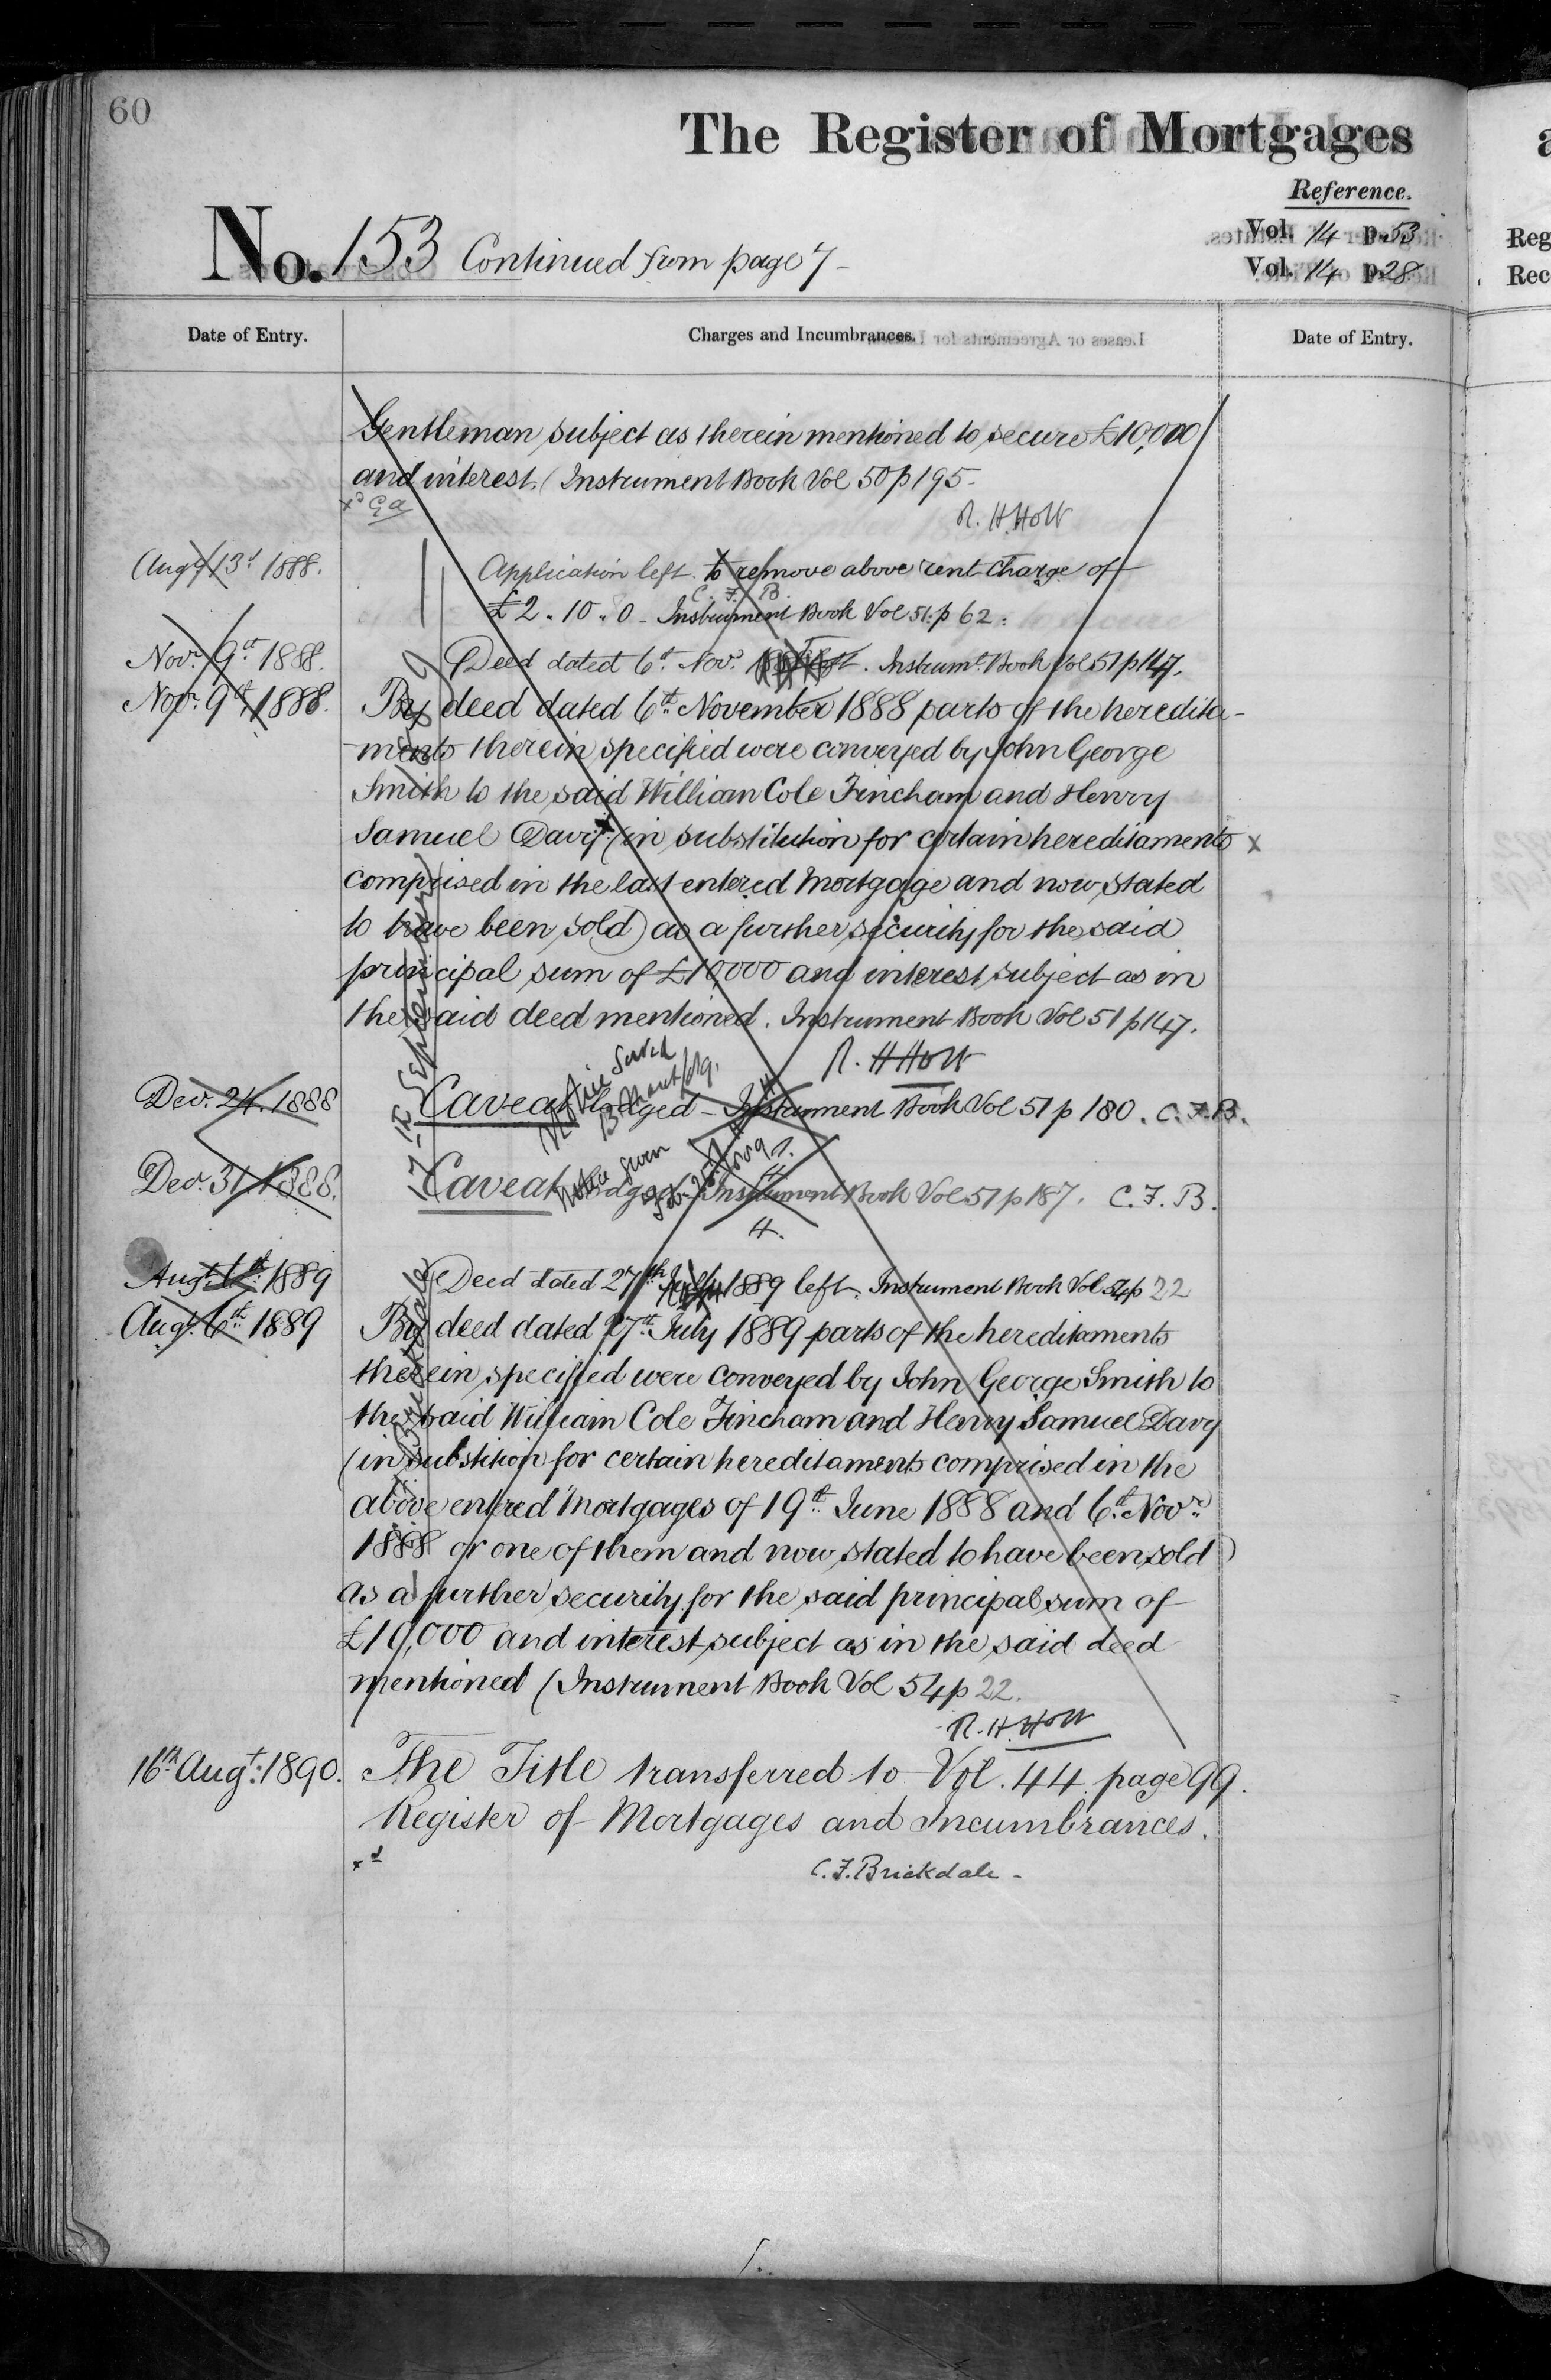 60
The Register of Mortgages
Reference.
No. 153 Continued from page 7
Vol. 14 p. 53
Vol. 14 p. 28
Reg
Rec
Date of Entry.
Charges and Incumbrances.
Date of Entry.
Gentleman subject as therein mentioned to secure £10,000
and interest. (Instrument Book Vol 50 p 195.
R. H. Holt
Augt 13th 1888.
Application left to remove above rent charge of
C. F. B.
£2.10.0 - Instrument Book Vol 51. p 62.
Novr 9th 1888.
Deed dated 6th Novr left. Instrumt Book Vol 51 p 147.
Novr 9th 1888.
By deed dated 6th November 1888 parts of the heredita-
ments therein specified were conveyed by John George
Smith to the said William Cole Fincham and Henry
Samuel Davy (in substitution for certain hereditaments x
comprised in the last entered Mortgage and now stated
to have been sold) as a further security for the said
principal sum of £10,000 and interest subject as in
the said deed mentioned. Instrument Book Vol 51 p 147.
R. H. Holt
Decr 24. 1888
Caveat lodged - Instrument Book Vol 51 p 180. C. F. B.
Decr 31. 1888.
Caveat lodged - Instrument Book Vol 51 p 187. C. F. B.
Augt 6th 1889
Deed dated 27th July 1889 left. Instrument Book Vol 54 p 22
Augt 6th 1889
By deed dated 27th July 1889 parts of the hereditaments
therein specified were conveyed by John George Smith to
the said William Cole Fincham and Henry Samuel Davy
(in substition for certain hereditaments comprised in the
above entered Mortgages of 19th June 1888 and 6th Novr
1888 or one of them and now stated to have been sold)
as a further security for the said principal sum of
£10,000 and interest subject as in the said deed
mentioned (Instrument Book Vol 54 p 22.
R. H. Holt
16th Augt: 1890.
The Title transferred to Vol. 44 page 99.
Register of Mortgages and Incumbrances.
C. F. Brickdale -